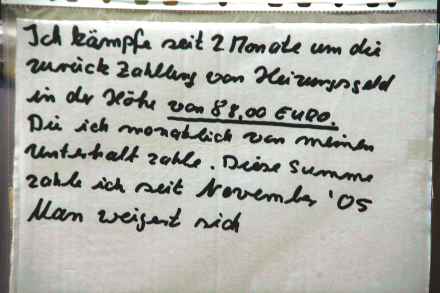 Ich kämpfe seit 2 Monate um die
zurück Zahlung von Heizungsgeld
in der Höhe von 88,00 EURO.
Die ich monatlich von meinen
Unterhalt zahle. Diese Summe
zahle ich seit November '05
Man weigert sich